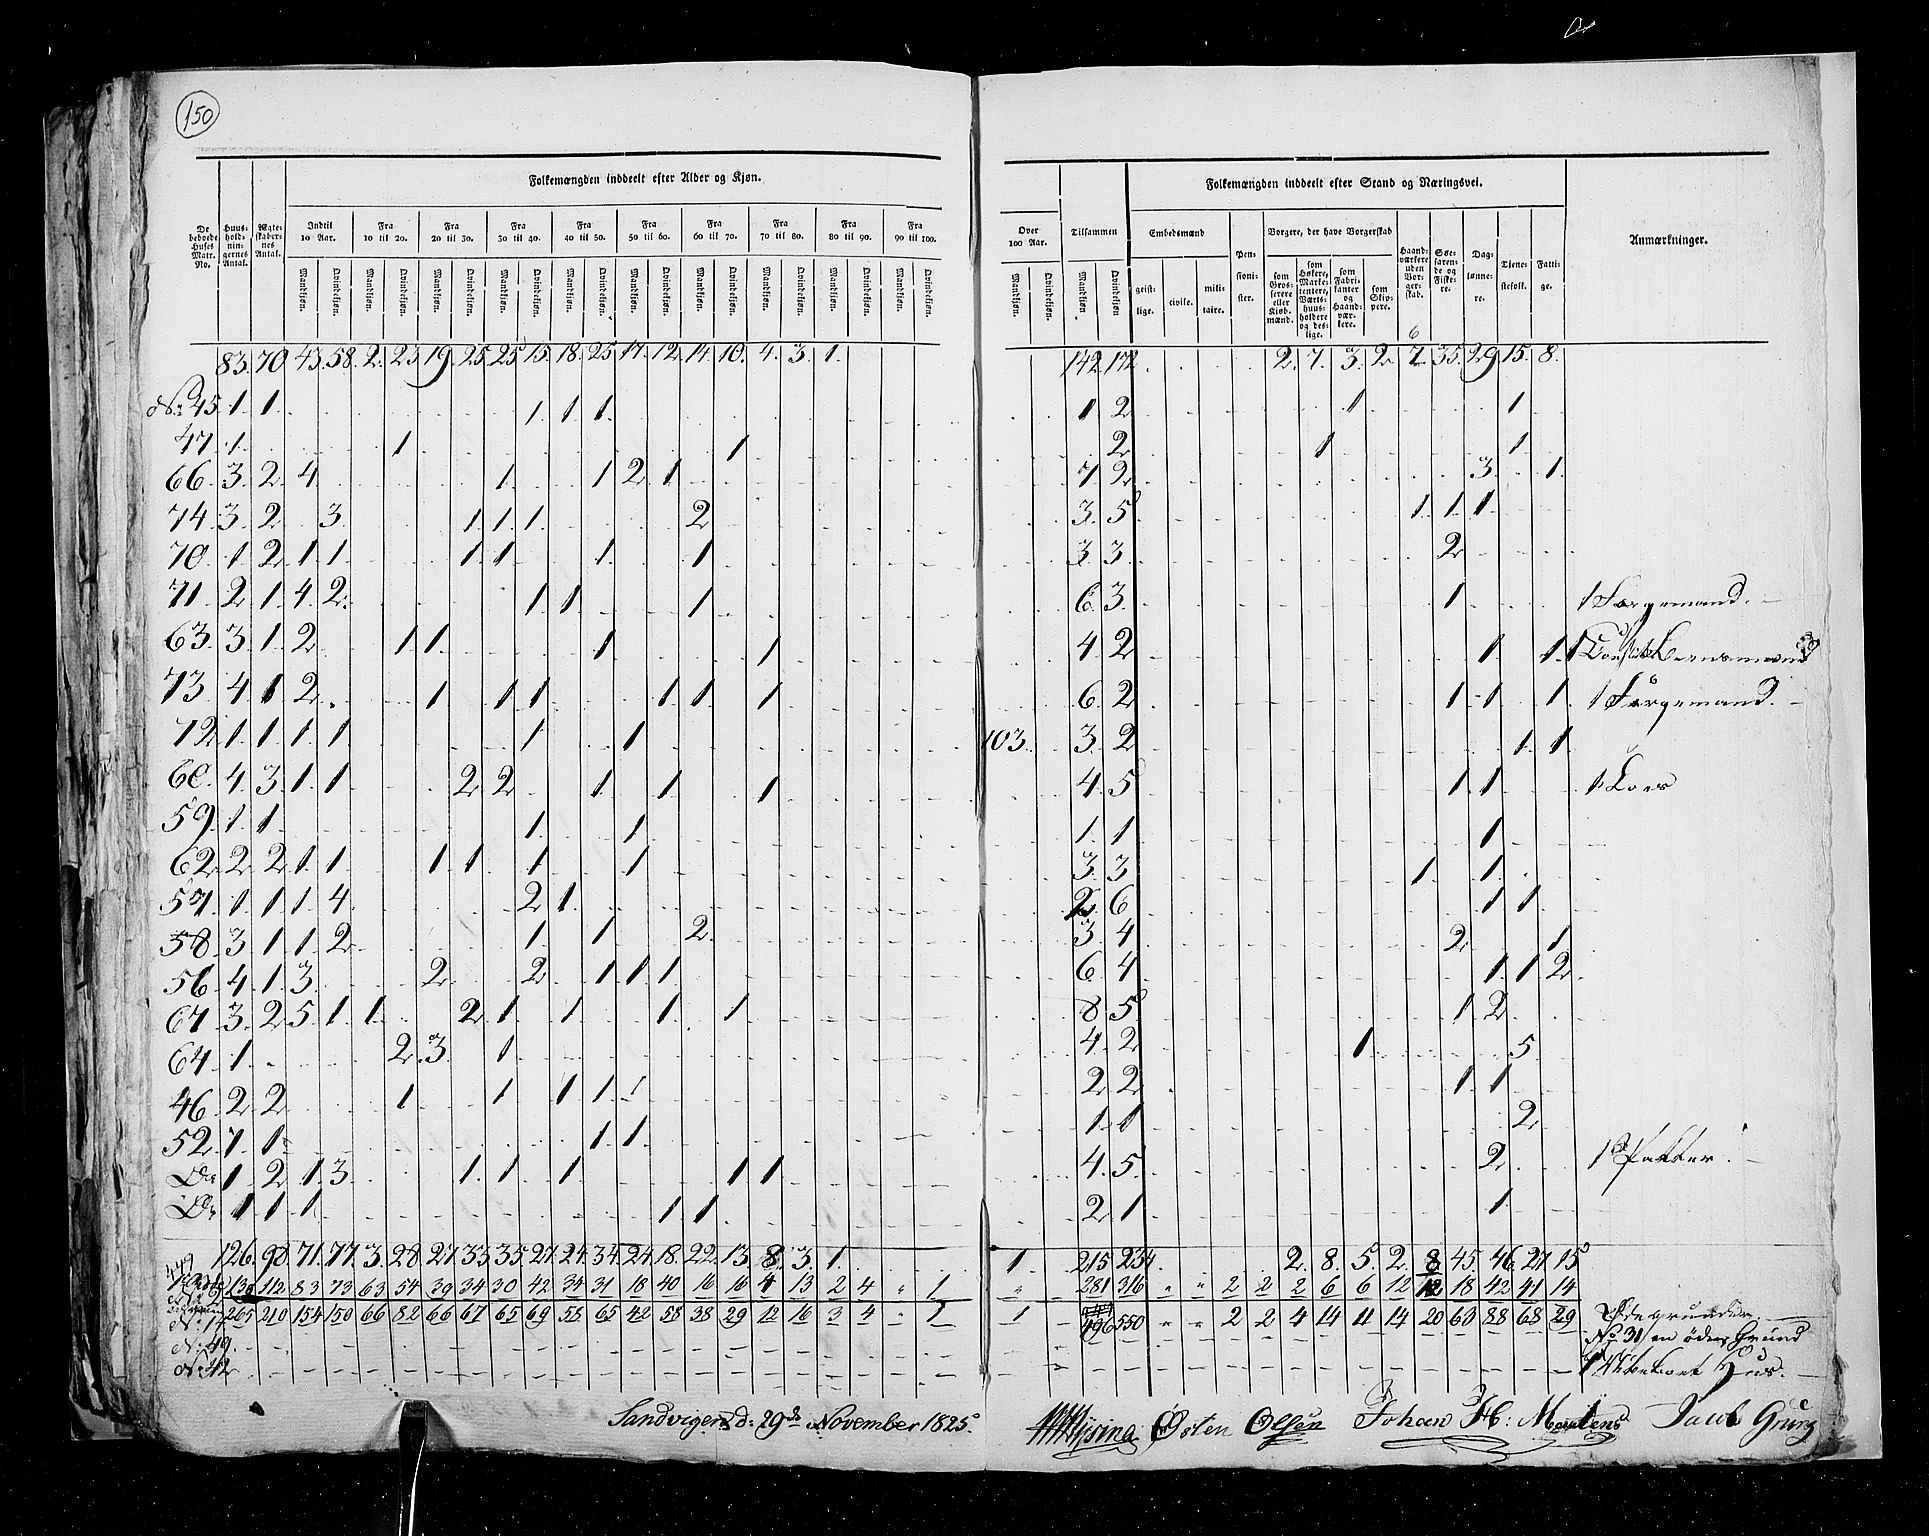 150
Folkemængden inddeelt efter Alder og Kjøn.
Folkemængden inddeelt efter Stand og Næringsvei.
De beboede Huses Matr. No.
Huus-hold-nin-gernes Antal.
Ægte-skaber-nes Antal.
Indtil 10 Aar.
Fra 10 til 20.
Fra 20 til 30.
Fra 30 til 40.
Fra 40 til 50.
Fra 50 til 60.
Fra 60 til 70.
Fra 70 til 80.
Fra 80 til 90.
Fra 90 til 100.
Over 100 Aar.
Tilsammen
Mandkjøn. Qvindekjøn.
Embedsmænd
geist-lige. civile. mili-taire.
Pen-sioni-ster.
Borgere, der have Borgerskab
som Gros-serere eller Kjøb-mænd.
som Høkere, Marke-tentere, Værts-huus-holdere og des-lige.
som Fabri-kanter og Haand-vær-kere.
som Skip-pere.
Haand-værkere uden Bor-ger-skab.
Søe-faren-de og Fiske-re.
Dag-lønne-re.
Tjene-stefolk.
Fatti-ge.
Anmærkninger.
6
83. 70 43. 58. 2. 23 19. 25. 25 15. 18. 25. 17. 12. 14. 10. 4. 3. 1. 142 172 2. 7. 3. 2. 7. 35. 29 15. 8.
No: 45. 1 1 1 1 1 1 2 1 1
47. 1 1 1 2 1 1
66. 3. 2. 4 1 1 2 1 7 2 3 1
74. 3. 2 3 1 1 1 2 3. 5 1 1 1
70. 1 2 1 1 1 1 1 1 3. 3 2
71. 2 1 4 2 1 1 1 6 3 1 1 Forgemand.
63. 3 1 2 1 1 1 1 4 2 1 1
73. 4 1 2 1 1 1 1 1 1 6 2 1 1 1
72 1 1 1 1 1 1 103. 3. 2 1 1
60. 4 3. 1 1 2 2 1 1 1 4 5 1 1 1 Loes
59. 1 1 1 1 1 1 1
62 2 2 1 1 1 1 1 1 3. 3 1 1
57. 1 1 1 4 2 1 2. 6 1 1
58. 3 1 1 2 1 1 2 3. 4 2 1
56. 4 1 3 2 2 1 1 1 6 4 1 1 2
67. 3. 2 5 1 1 2 1 1 1 1 8 5 1 2
64. 1 2 3 1 4 2 1 5
46. 2 2 1 1 1 1 1 2 2 1 1
52. 1 1 1 1 1 1 2
Do 1 2 1 3 1 1 1 1 1 4. 5. 2
Do 1 1 1 1 1 2 1 1
449
126. 98. 71. 77. 3. 28 27. 33. 35. 27. 24. 34. 24. 18. 22. 13. 8. 3. 1. 1. 215 234 2. 8. 5. 2. 8 45. 46. 27 15
139 112 83 73 63 54 39 34 30 42 34 31 18 40 16 16 4 13 2 4 " 1 281 316 " " 2 2 2 6 6 12 12 18 42 41 14
265 210 154 150 66 82 66 67 65 69 58 65 42 58 38 29 12 16 3 4 " 1 1 496 550 " " 2 2 4 14 11 14 20 63 88 68 29
Ødegrunder
No 31 en øde Grund
N: 49.
N: 42
Sandvigen d: 29de November 1825
Østen Olsen Johan H: Martens Jacob Grung